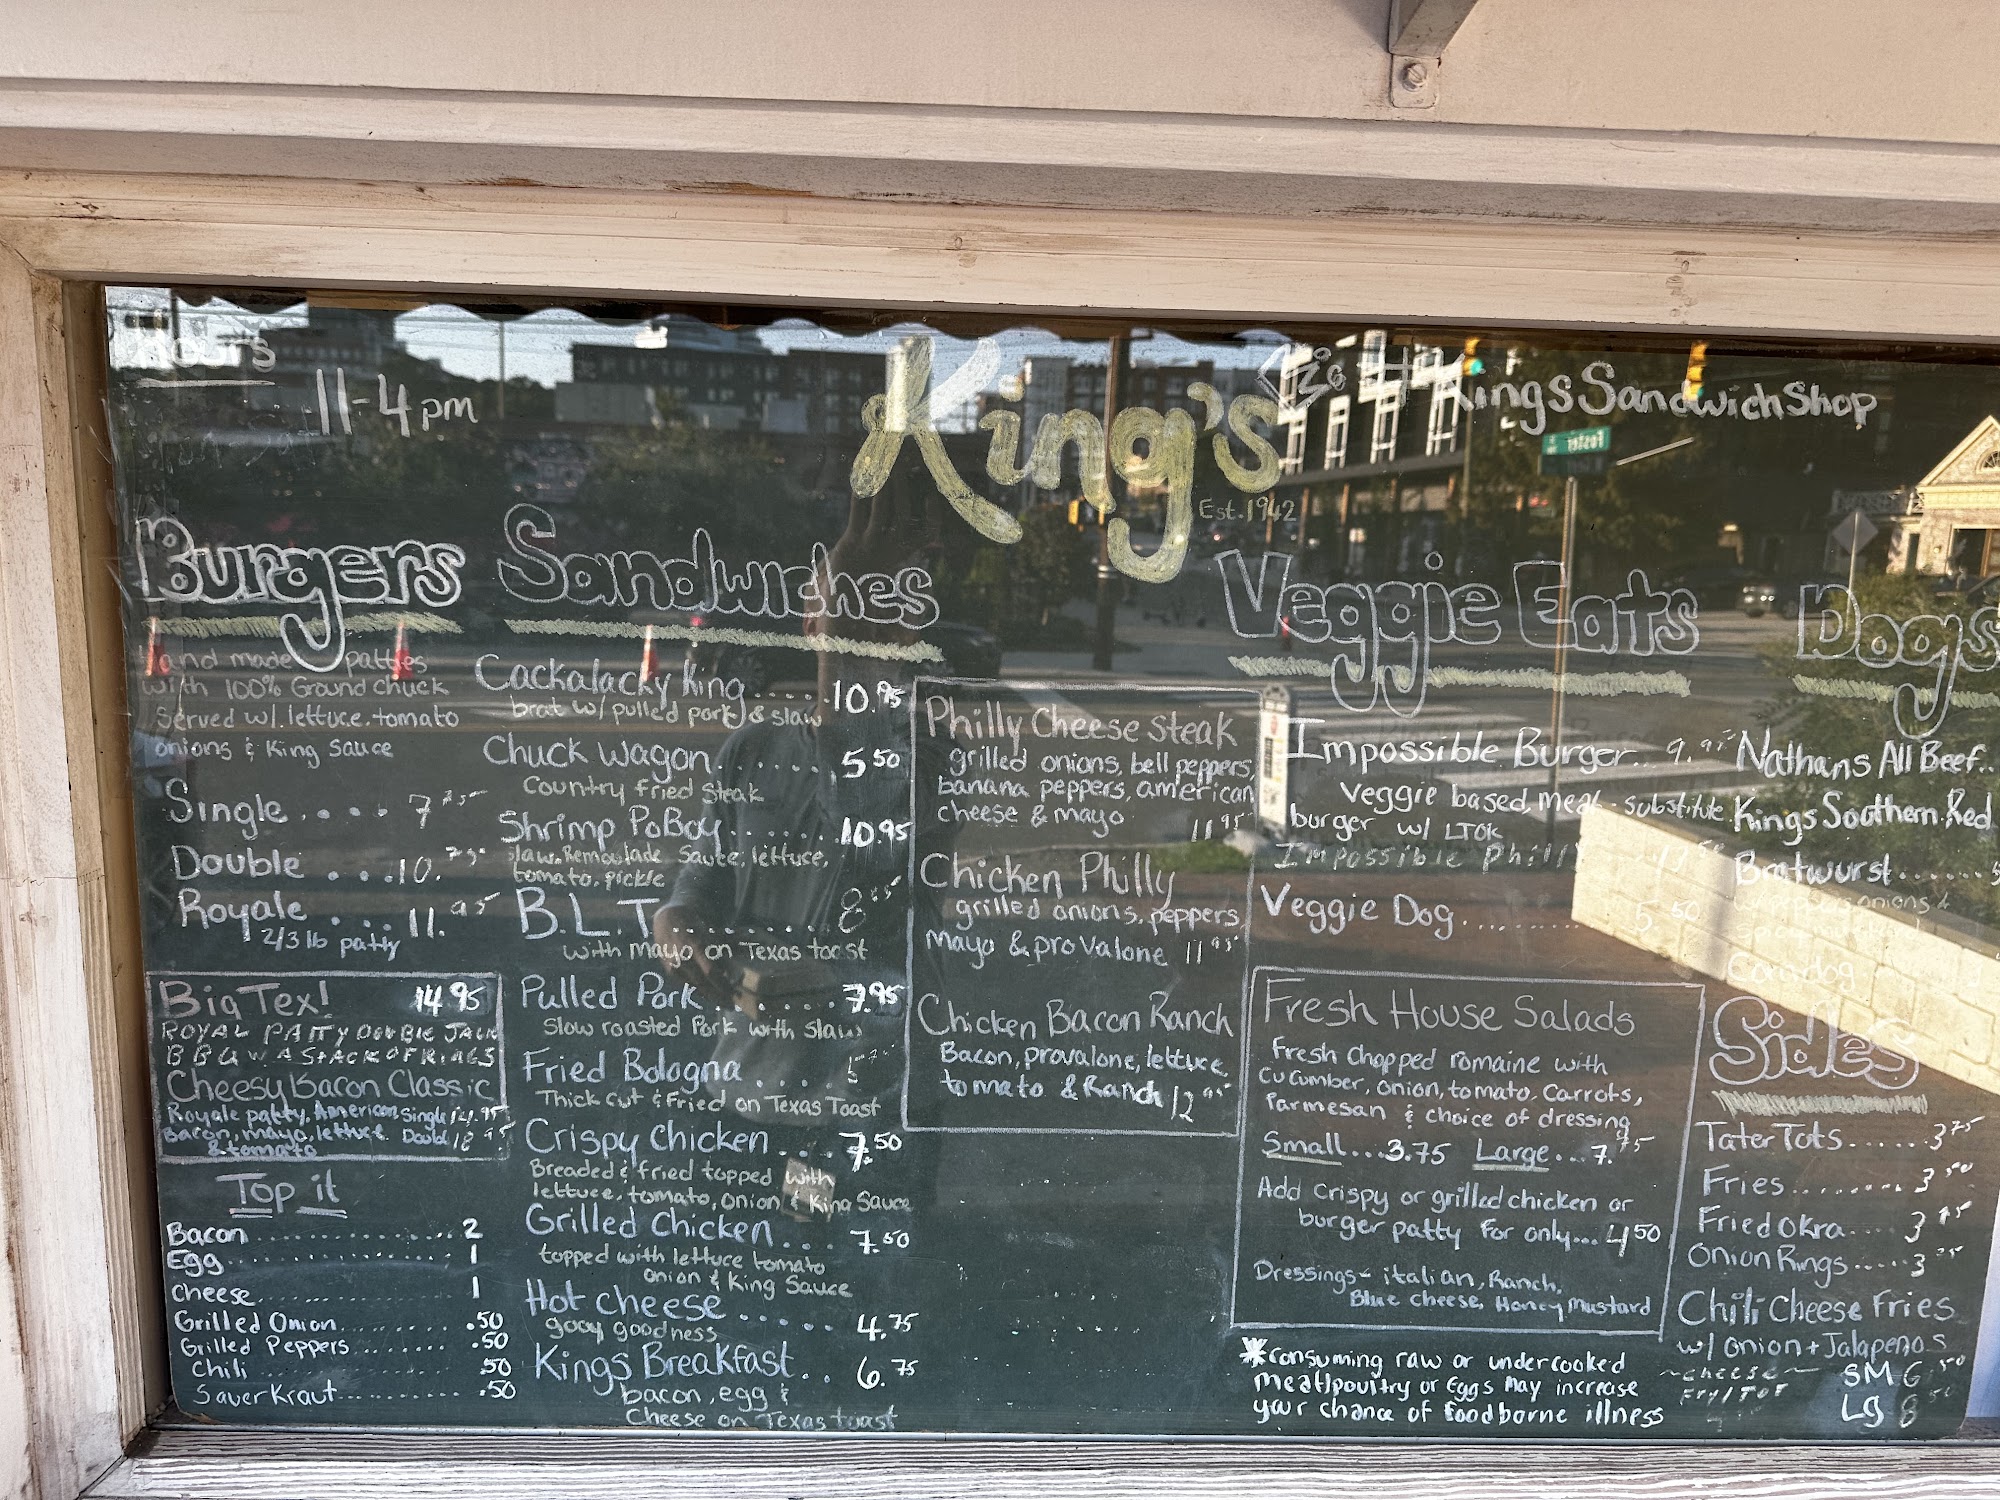 Hours
11-4pm
King's
Est. 1942
KingsSandwichShop
Foster
Burgers
Hand made patties
with 100% Ground chuck
Served w/ lettuce tomato
onions & King Sauce
Single .... 7
Double ....10.
Royale .... 11.95
2/3 lb patty
Big Tex! 14.95
ROYAL PATTY DOUBLE JACK
BBQ W A STACK OF RINGS
Cheesy Bacon Classic
Royale patty, American Single 14.95
Bacon, mayo, lettuce Double 18.95
& tomato
Top it
Bacon 2
Egg 1
Cheese 1
Grilled Onion .50
Grilled Peppers .50
Chili .50
SauerKraut .50
Sandwiches
Cackalacky King .... 10.95
brat w/ pulled pork & slaw
Chuck Wagon ...... 5.50
Country fried steak
Shrimp PoBoy ...... 10.95
slaw, Remoulade Sauce, lettuce,
tomato, pickle
B.L.T. ....... 8
with Mayo on Texas toast
Pulled Pork ....... 7.95
Slow roasted Pork with slaw
Fried Bologna .... 5
Thick Cut & Fried on Texas Toast
Crispy Chicken .... 7.50
Breaded & fried topped with
lettuce, tomato, onion & King Sauce
Grilled Chicken ... 7.50
topped with lettuce tomato
onion & King Sauce
Hot cheese ..... 4.75
gooy goodness
Kings Breakfast .. 6.75
bacon, egg &
Cheese on Texas toast
Philly Cheese steak
grilled onions, bell peppers,
banana peppers, american
cheese & mayo 11.95
Chicken Philly
grilled onions, peppers,
mayo & provalone 11.95
Chicken Bacon Ranch
Bacon, provalone, lettuce
tomato & Ranch 12
Veggie Eats
Impossible Burger... 9.
veggie based, meat substitute
burger w/ LTOK
Impossible Philly
Veggie Dog ......... 5.50
Fresh House Salads
Fresh Chopped romaine with
cucumber, onion, tomato, carrots,
Parmesan & choice of dressing
Small...3.75 Large...7.75
Add crispy or grilled chicken or
burger patty for only... 4.50
Dressings- italian, Ranch,
Blue Cheese, Honey mustard
*consuming raw or undercooked
meat/poultry or Eggs may increase
your chance of foodborne illness
Dogs
Nathans All Beef..
Kings Southern Red
Bratwurst......
w/ peppers onions &
spicy mustard
Corndog
Sides
Tater Tots......3.75
Fries......... 3.50
Fried Okra.... 3.75
Onion Rings.....3
Chili Cheese Fries
w/ onion + Jalapeños
~cheese~ SM 6.50
Fry/Tot LG 8